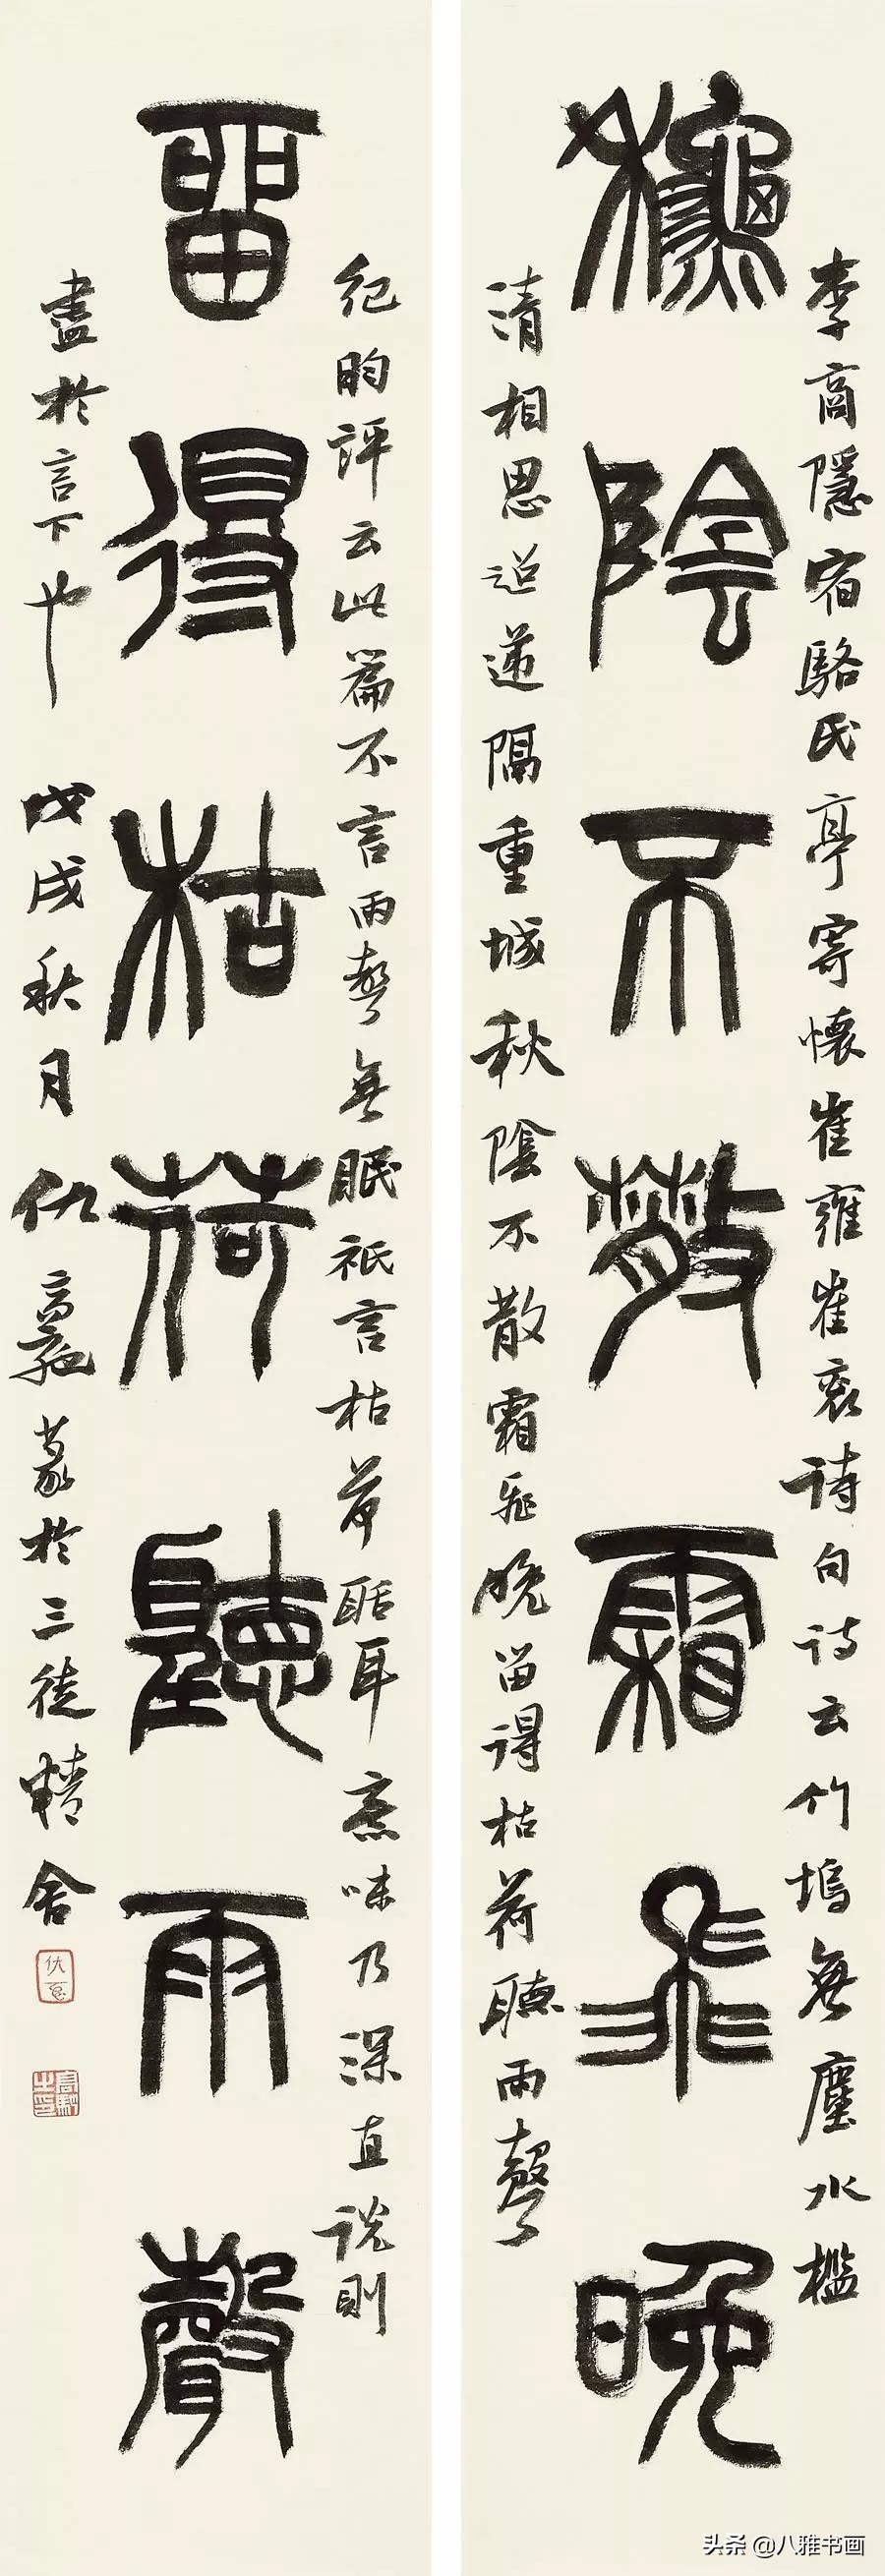 秋陰不散霜飛晚
李商隱宿駱氏亭寄懷崔雍崔袞詩句詩云竹塢無塵水檻
清相思迢遞隔重城秋陰不散霜飛晚留得枯荷聽雨聲
留得枯荷聽雨聲
紀昀評云此篇不言雨聲無眠祇言枯荷聒耳意味乃深直說則
盡於言下也 戊戌秋月仇高馳篆於三徒精舍
头条 @八雅书画